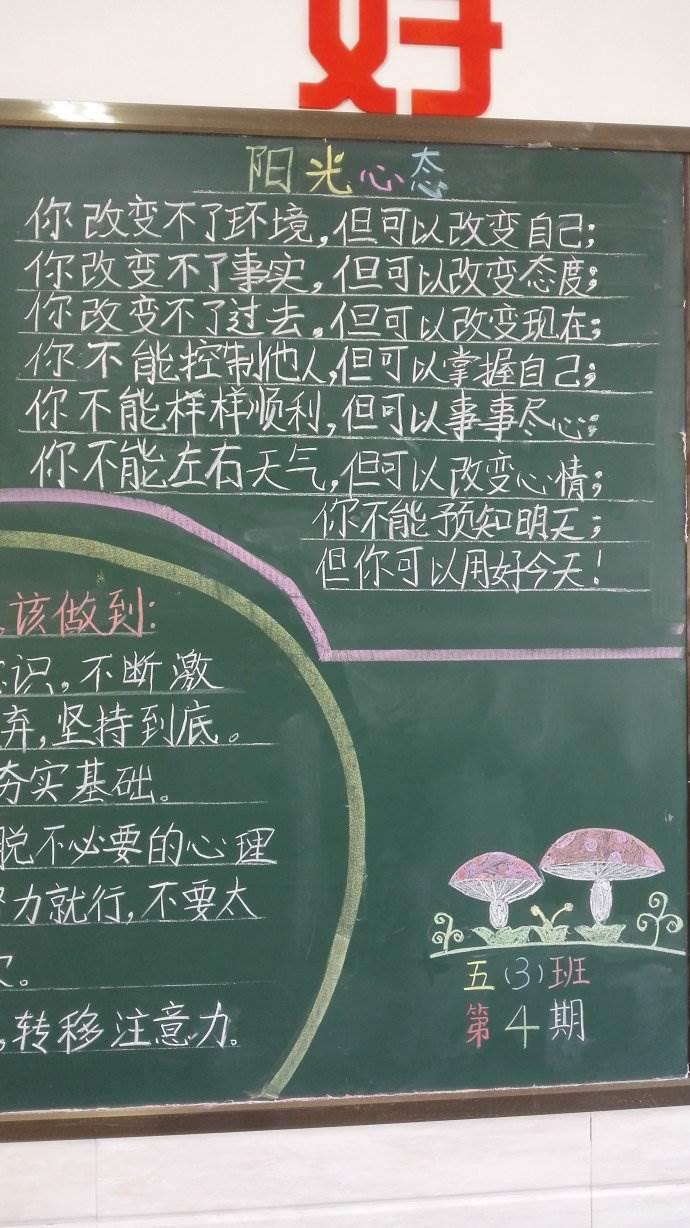 好
阳光心态
你改变不了环境,但可以改变自己;
你改变不了事实,但可以改变态度;
你改变不了过去,但可以改变现在;
你不能控制他人,但可以掌握自己;
你不能样样顺利,但可以事事尽心;
你不能左右天气,但可以改变心情;
你不能预知明天;
但你可以用好今天!
该做到:
识,不断激
弃,坚持到底。
夯实基础。
脱不必要的心理
力就行,不要太
。
,转移注意力。
五(3)班
第4期